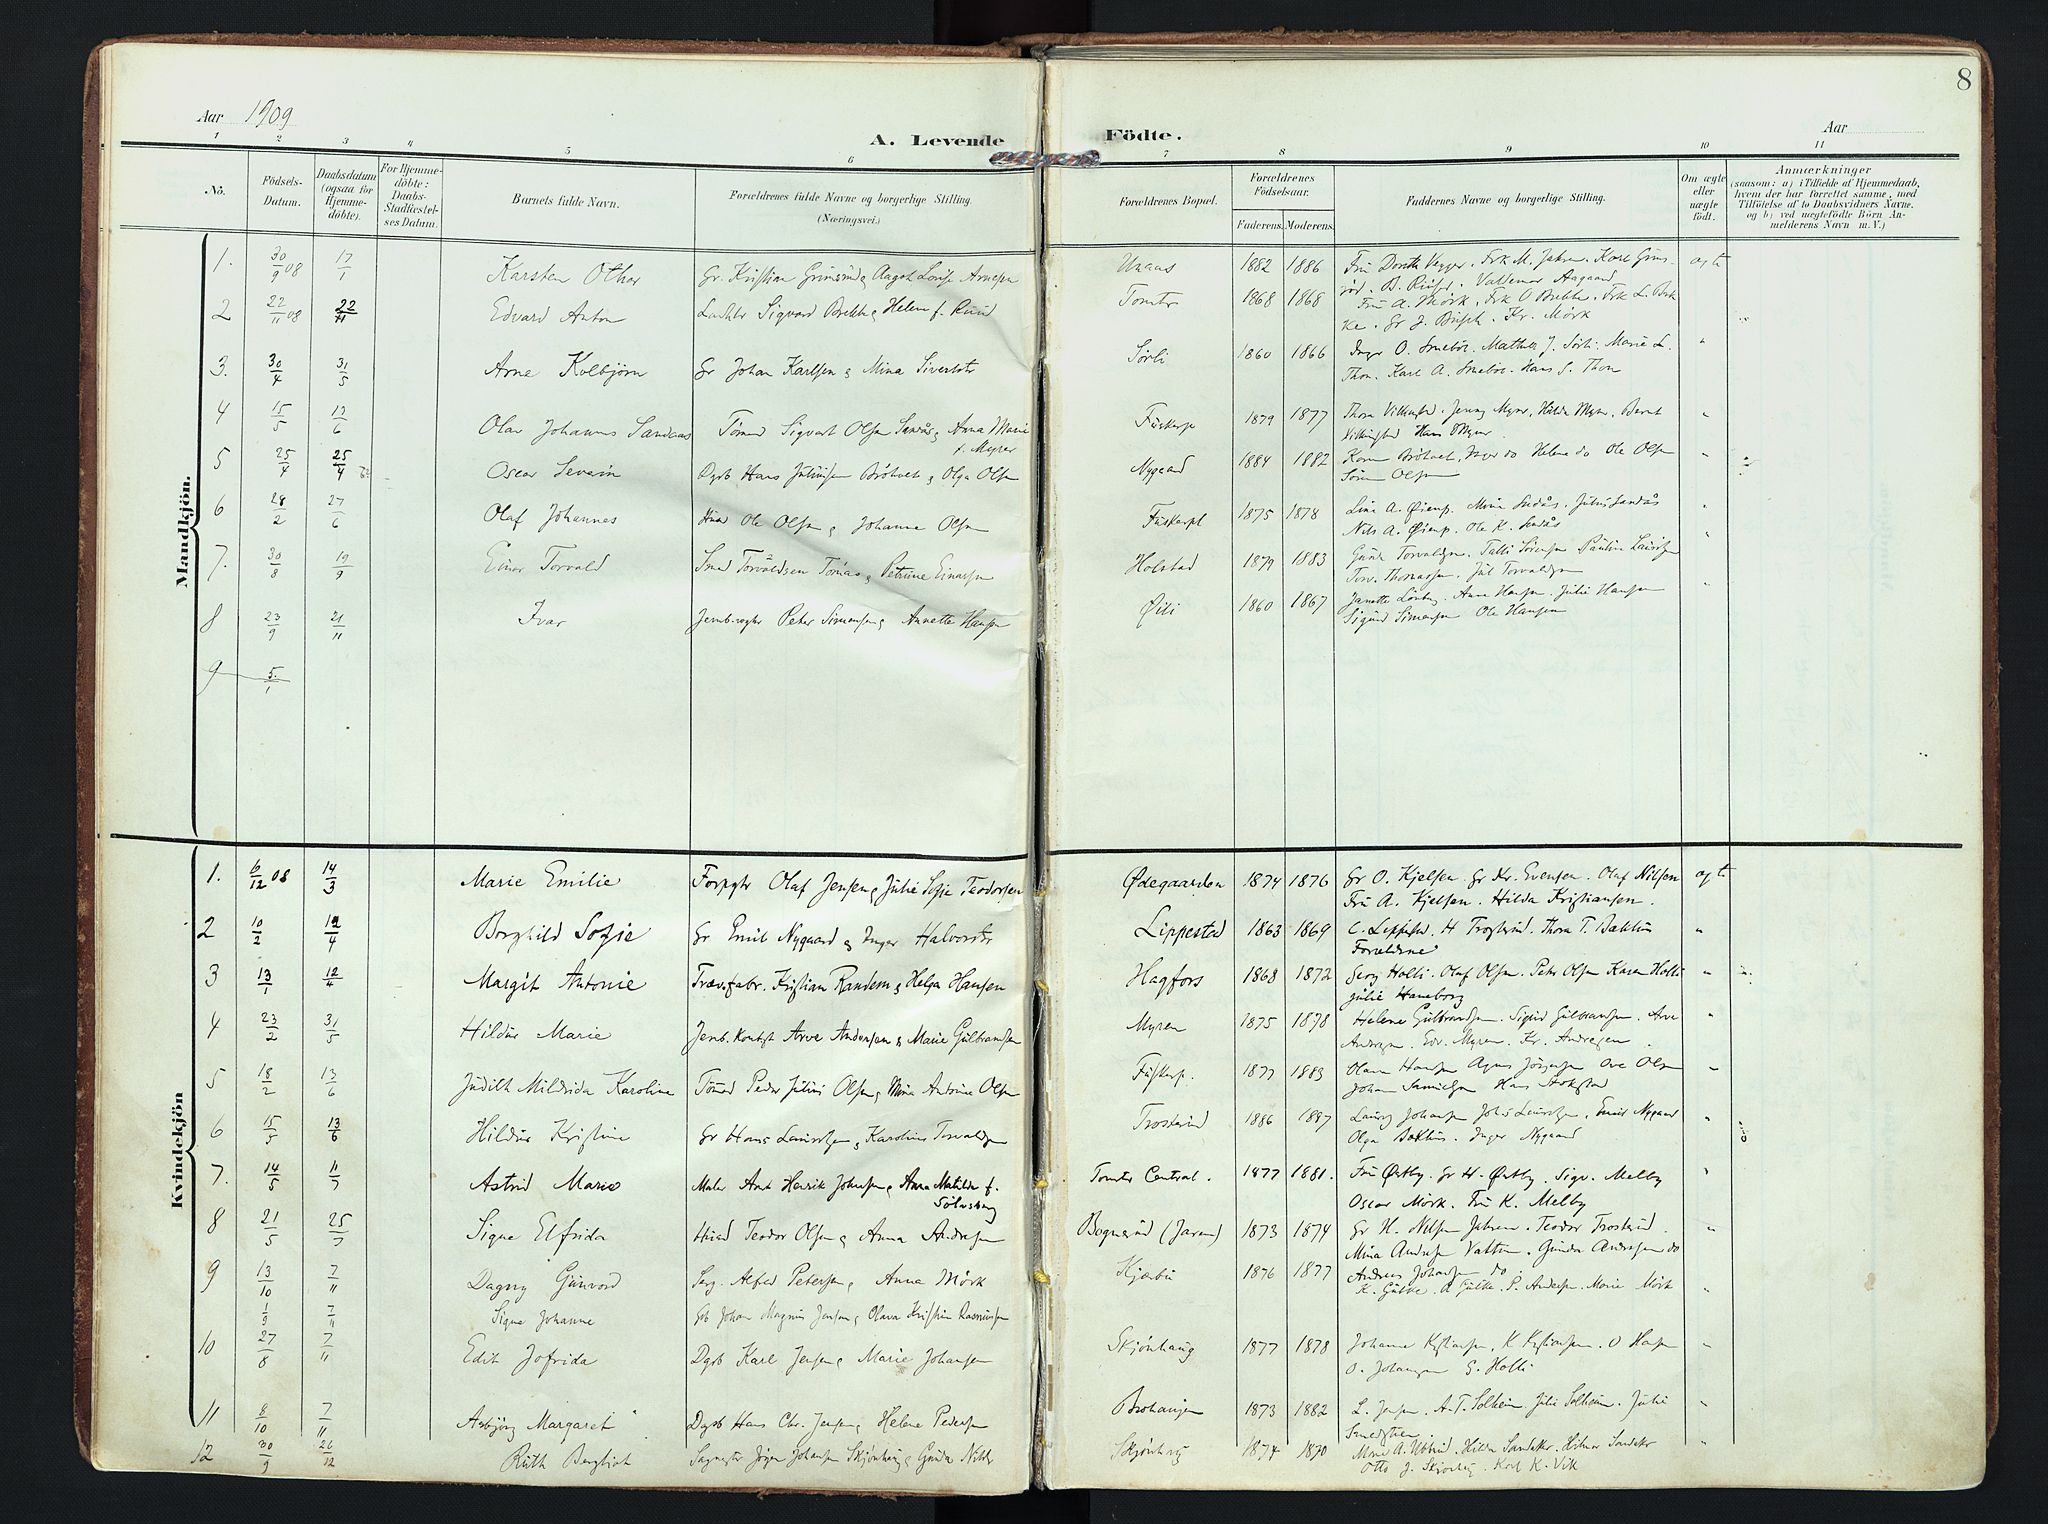 8
Aar 1909
A. Levende Födte.
Aar
1 2 3 4 5 6 7 8 9 10 11
No. Födsels-Datum. Daabsdatum (ogsaa for Hjemme-döbte). For Hjemme-döbte: Daabs-Stadfæstel-ses Datum. Barnets fulde Navn. Forældrenes fulde Navne og borgerlige Stilling. (Næringsvei.) Forældrenes Bopæl. Forældrenes Födselsaar. Faderens. Moderens. Faddernes Navne og borgerlige Stilling. Om ægte eller uægte födt. Anmærkninger (saasom: a) i Tilfælde af Hjemmedaab, hvem der har forrettet samme, med Tilföielse af to Daabsvidners Navne, og b) ved uægtefödte Börn An-melderens Navn m. V.)
Mandkjön.
1. 30/9 08 17/1 Karsten Othar Gr. Kristian Grimsröd & Aagot Lovise Arnesen 1882 1886 ægte
2 22/11 08 22/11 Edvard Anton Sigvard Brekke & Helene f. Ruud Tomter 1868 1868 Fru A. Mörk. Frk O Brekke. Frk L. Brek
ke. Gr J. Kr. Mörk
3. 30/4 31/5 Arne Kolbjørn Gr Johan Karlsen & Mina Sivertstr Sørli 1860 1866 Inger O. Mathea J. Sörli. Marie L.
Thon. Karl A. Hans S. Thon
4 15/5 13/6 Olav Johannes Sandaas Tömm Sigvart Olsen Sandås & Anna Marie f. Myrer Fuskerp 1879 1877 Thora Jenny Myrer, Hilda Myrer, Bernt
Hans Myrer
5 25/4 25/4 Oscar Severin Dgrb Hans Juliussen Brötvet & Olga Olsen Nygaard 1884 1882 Karen Brötvet, do Helene do Ole Olsen
Sören Olsen
6 28/2 27/6 Olaf Johannes Hmd Ole Olsen & Johanne Olsen 1875 1878 Lina A. Øierp. Mina Sandås, Julius Sandås
Nils A. Øierp. Ole K. Sandås
7. 30/8 19/9 Einar Torvald Smed Torvaldsen Tomas & Petrine Einarsen Holstad 1879 1883 Torvaldsen. Sörensen Pauline Lauritzen
Torv. Thomassen. Jul Torvaldsen
8 23/9 21/11 Ivar Jernb.vogter Peter Simensen & Annette Hansen Øili 1860 1867 Janette Anna Hansen. Julie Hansen
Sigurd Simensen Ole Hansen
9 5/1
Kvindekjön
1. 6/12 08 14/3 Marie Emilie Forpgtr Olaf Jensen & Julie Sofie Teodorsen Ødegaarden 1874 1876 Gr O. Kjelsen. Gr Kr. Evensen. Olaf Nilsen ægte
Fru A. Kjelsen. Hilda Kristiansen.
2 10/2 12/4 Borghild Sofie Gr Emil Nygaard & Inger Halvorstr Lippestad 1863 1869 C. Lippestad. H Trosterud. Thora T. Bakkhus
Forældrene
3 13/1 12/4 Margit Antonie Trævfabr. Kristian Randem & Helga Hansen Hagfors 1868 1872 Georg Holli. Olaf Olsen. Peter Olsen Karen Holli
Julie Haneborg
4 23/2 31/5 Hildur Marie Jernb.kontgt Arve Andersen & Marie Gulbrandsen Myren 1875 1878 Helene Gulbrandsen. Sigurd Gulbrandsen. Arve
Andersen. Edv. Myren. Kr. Andresen
5 18/2 13/6 Judith Mildrida Karoline Tömmd Peder Julius Olsen & Mina Antonie Olsen Fuskerp. 1877 1883 Olava Hansen Agnes Jörgensen Ove Olsen
Johan Samuelsen Hans
6 15/5 13/6 Hildur Kristine Gr Hans Lauritzen & Karoline Torvaldsen Trosterud 1886 1887 Lauritz Johansen Johs Lauritzen, Emil Nygaard
Olga Bakkhus. Inger Nygaard
7. 14/5 11/7 Astrid Marie Maler Ant Henrik Johnsen & Anna Matilde f. Sölvsberg Tomter Central. 1877 1881. Fru Østby. Gr H. Østby. Sigv. Melby
Oscar Mörk. Fru K. Melby
8 21/5 25/7 Signe Elfrida Hmd Teodor Olsen & Anna Andresen Bognerud (Jaren) 1873 1874 Gr H. Nilsen Jahren. Teodor Trosterud.
Mina Andresen Gunda Andresen do
Andreas Johansen do
9 13/10 7/11 Dagny Gunvord Serg. Alfred Petersen & Anna Mörk Kjærbu 1876 1877 K. Gulke. A Gulke. P. Andersen. Marie Mörk
1/9 7/11 Signe Johanne Gb Johan Magnus Jensen & Olava Kristine Rasmussen
10 27/8 7/11 Edit Jofrida Dgrb Karl Jensen & Marie Johansen Skjönhaug 1877 1878 Johanna Kristiansen, K Kristiansen. O Hansen
O. Johansen G. Holli
11 8/10 7/11 Asbjörg Margaret Dgrb Hans Chr. Jensen & Helene Pedersen Brohaugen 1873 1882 L. Jensen. A. T. Solheim, Julie Solheim. Julie
12 30/9 26/12 Ruth Bergliot Sagmester Jörgen Johansen Skjönhaug & Gunda Nilstr Skjönhaug 1874 1870 Hilda Sandaker. Hilmar Sandaker
Otto J. Skjönhaug. Karl K. Vik